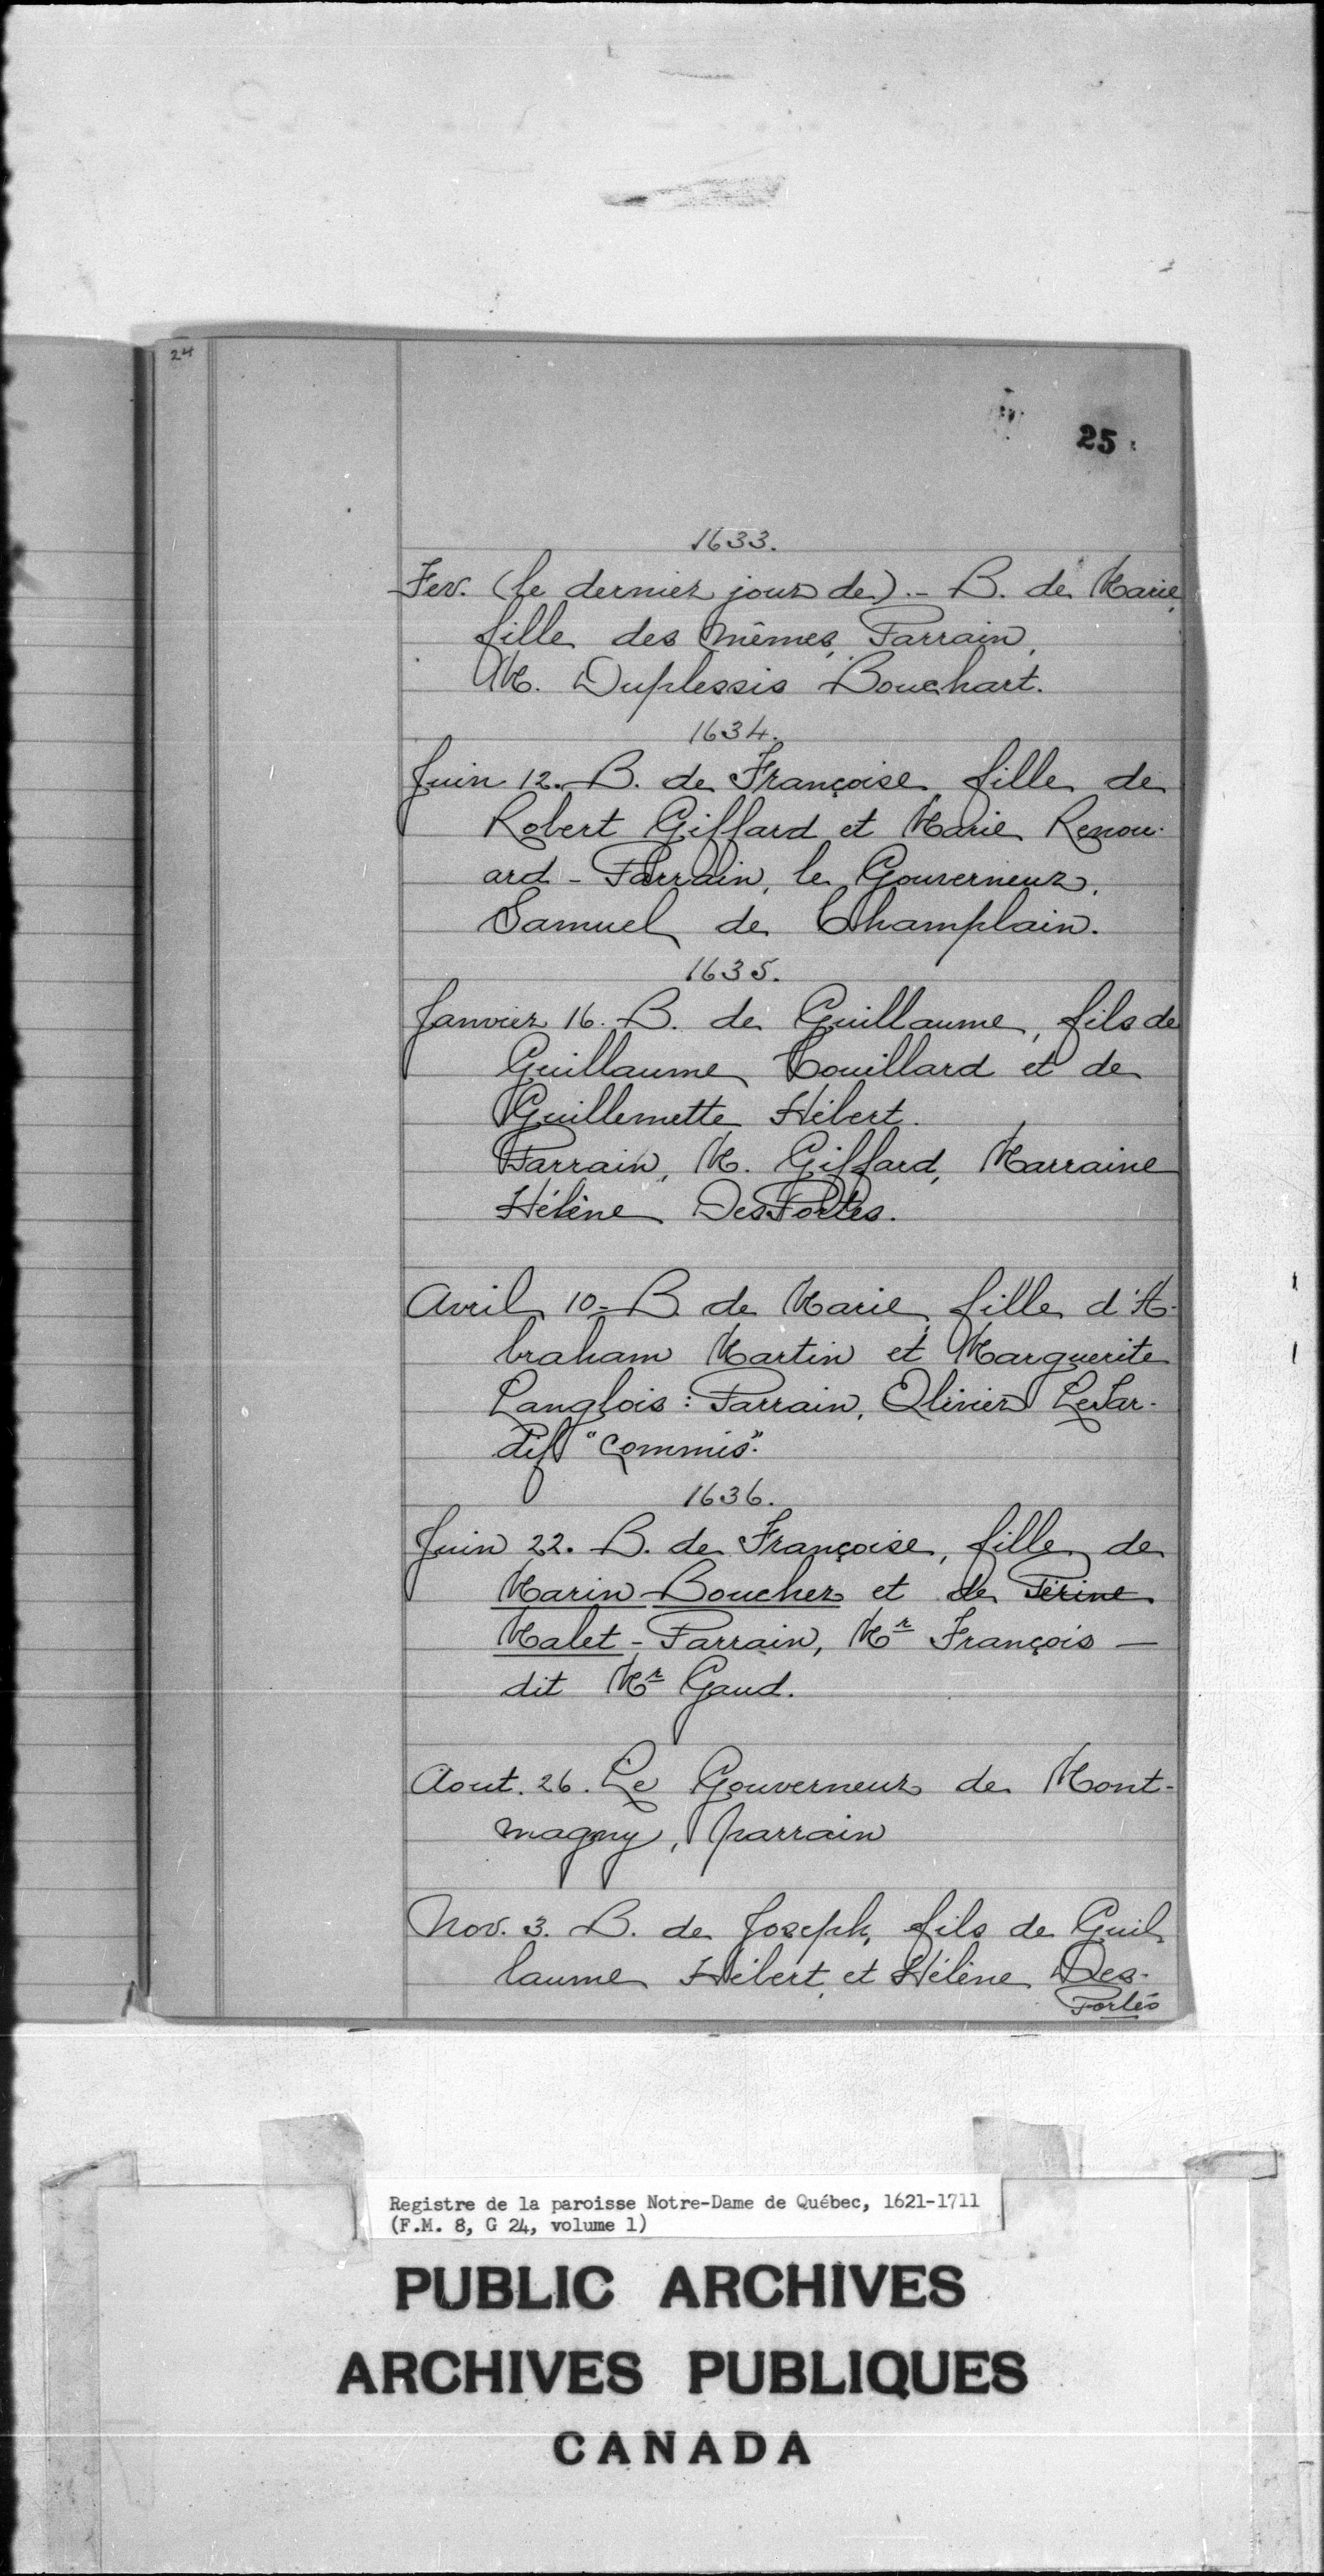 24
25
1633.
Fev. (le dernier jour de).- B. de Marie,
fille des mêmes, Parrain,
M. Duplessis Bouchart.
1634.
Juin 12. B. de Françoise fille de
Robert Giffard et Marie Renou-
ard - Parrain, le Gouverneur,
Samuel de Champlain.
1635.
Janvier 16. B. de Guillaume, fils de
Guillaume Couillard et de
Guillemette Hébert.
Parrain, M. Giffard, Marraine
Hélène DesPortes.
Avril 10 - B. de Marie, fille d'A-
braham Martin et Marguerite
Langlois : Parrain, Olivier LeTar-
dif "commis".
1636.
Juin 22. B. de Françoise, fille de
Marin Boucher et de Périne
Malet - Parrain, Mr François —
dit Mr Gand.
Aout. 26. Le Gouverneur de Mont-
magny, parrain
Nov. 3. B. de Joseph, fils de Guil
laume Hébert, et Hélène Des-
Portes
Registre de la paroisse Notre-Dame de Québec, 1621-1711
(F.M. 8, G 24, volume 1)
PUBLIC ARCHIVES
ARCHIVES PUBLIQUES
CANADA